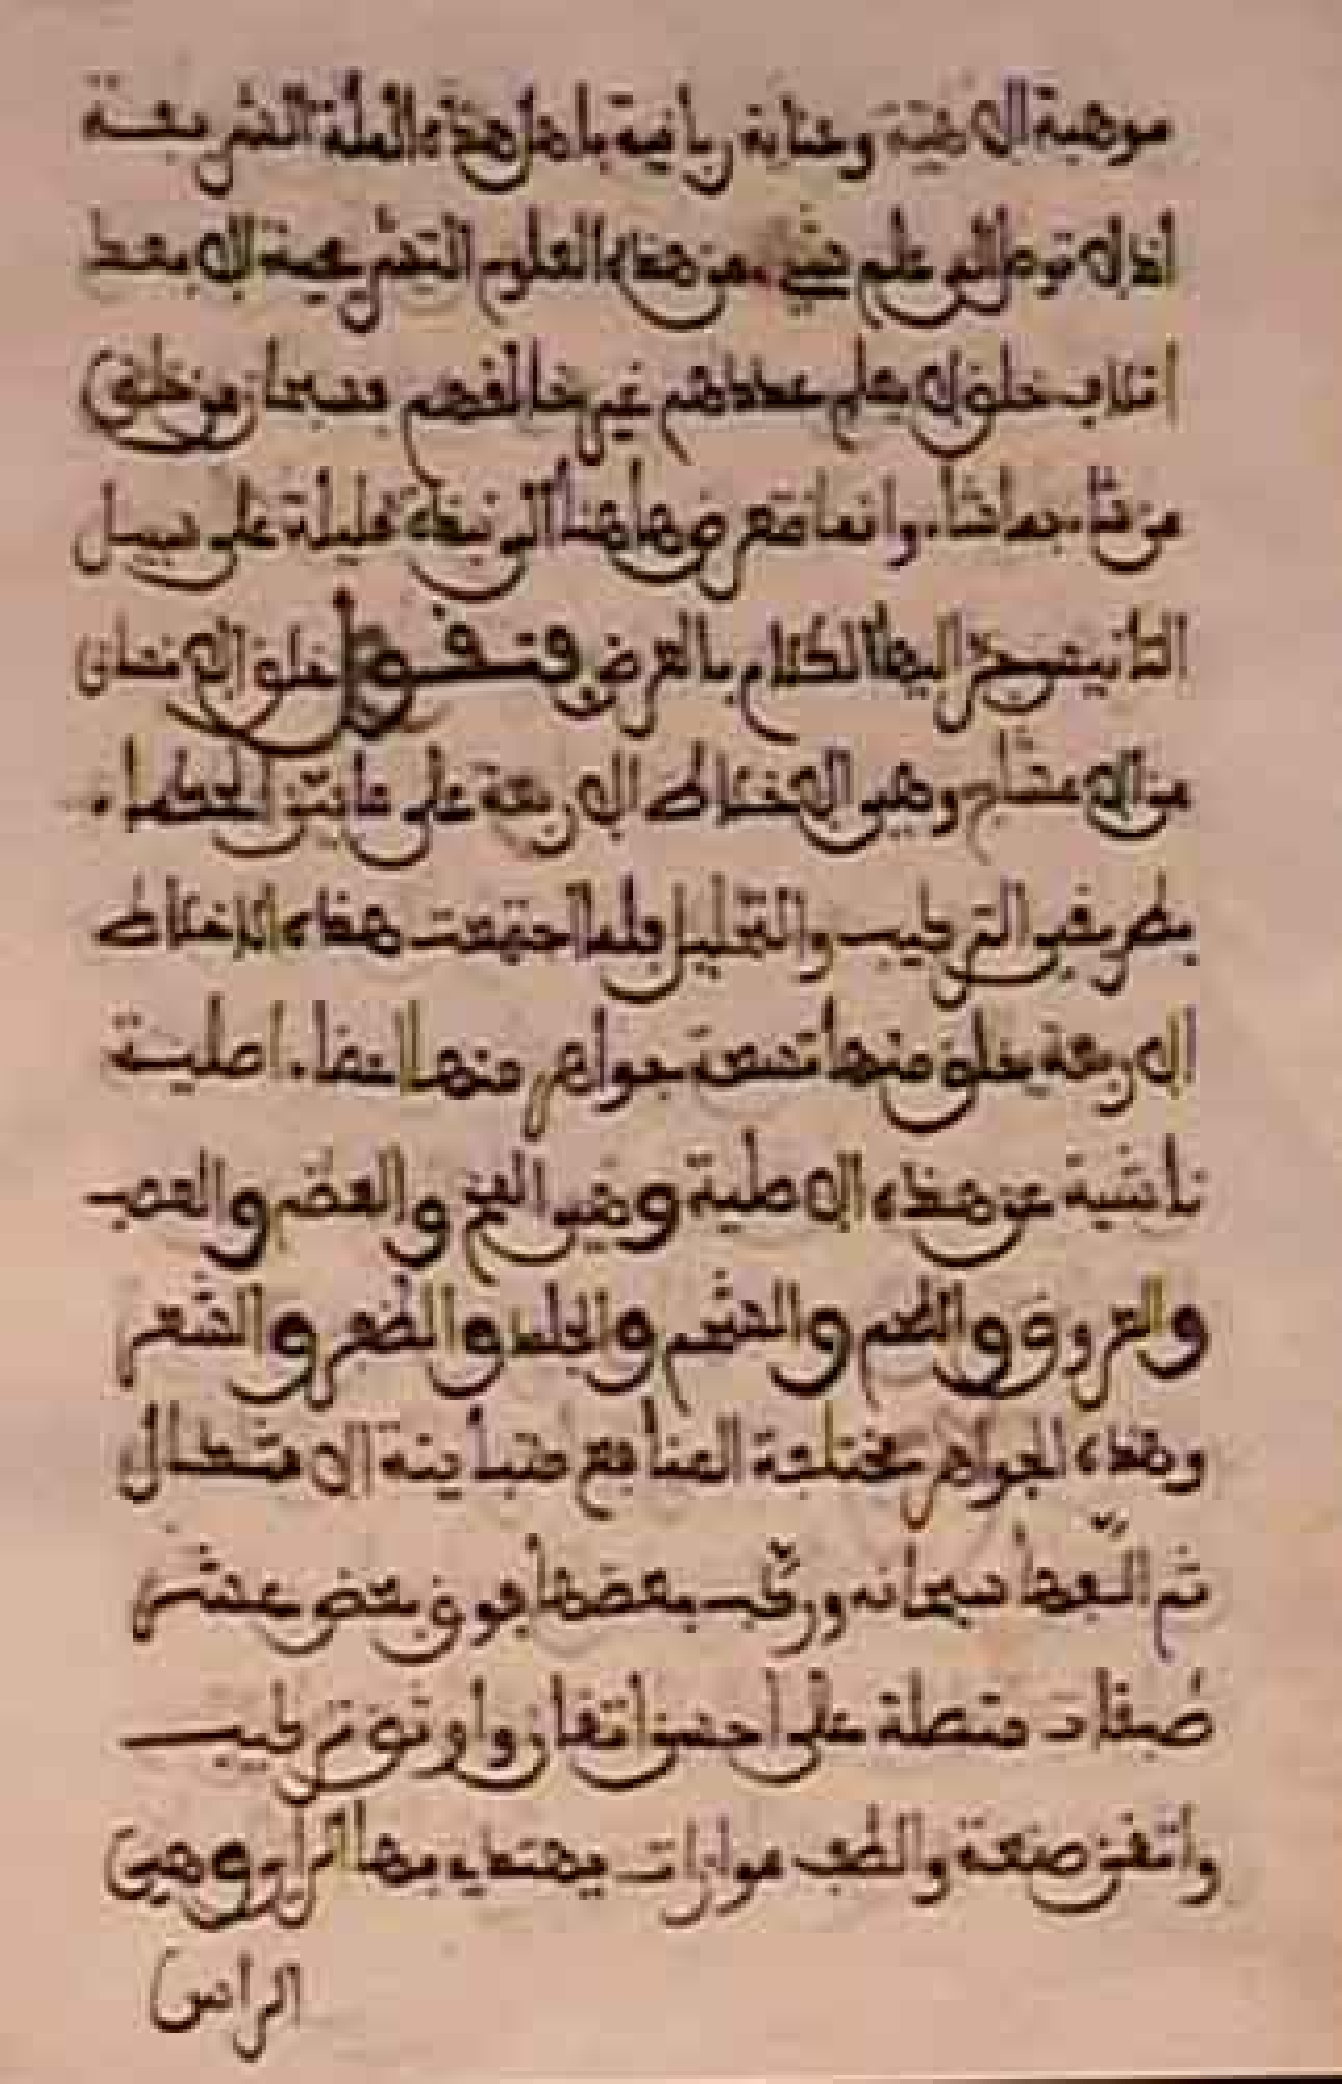 موهبة الاهية وعناية ربانية باهل هذه الملة الشريفة
اذ لا توصل الى علم شيء من هذه العلوم التشريحية الا بعد
اتلاف خلق لا يعلم عددهم غير خالقهم فسبحان من خلق
من شاء بما شاء وانما نتعرض هاهنا الى نبذة قليلة على سبيل
التانيس اليها الكلام بالعرض فنقول خلق الانسان
من الامشاج وهي الاخلاط الاربعة على ما بين الحكماء
بطريقي التركيب والتحليل فلما اجتمعت هذه الاخلاط
الاربعة خلق منها تسعة جواهر منها اعضاء اصلية
ناشية عن هذه الاصلية وهي المخ والعظم والعصب
والعروق واللحم والشحم والجلد والظفر والشعر
وهذه الجواهر مختلفة المنافع متباينة الاشكال
ثم الفها سبحانه وركب بعضها فوق بعض عشر
طبقات متصلة على احسن اتقان واوثق تركيب
واتقن صنعة والطف موازات يهتدي بها الراي وهي
الراس